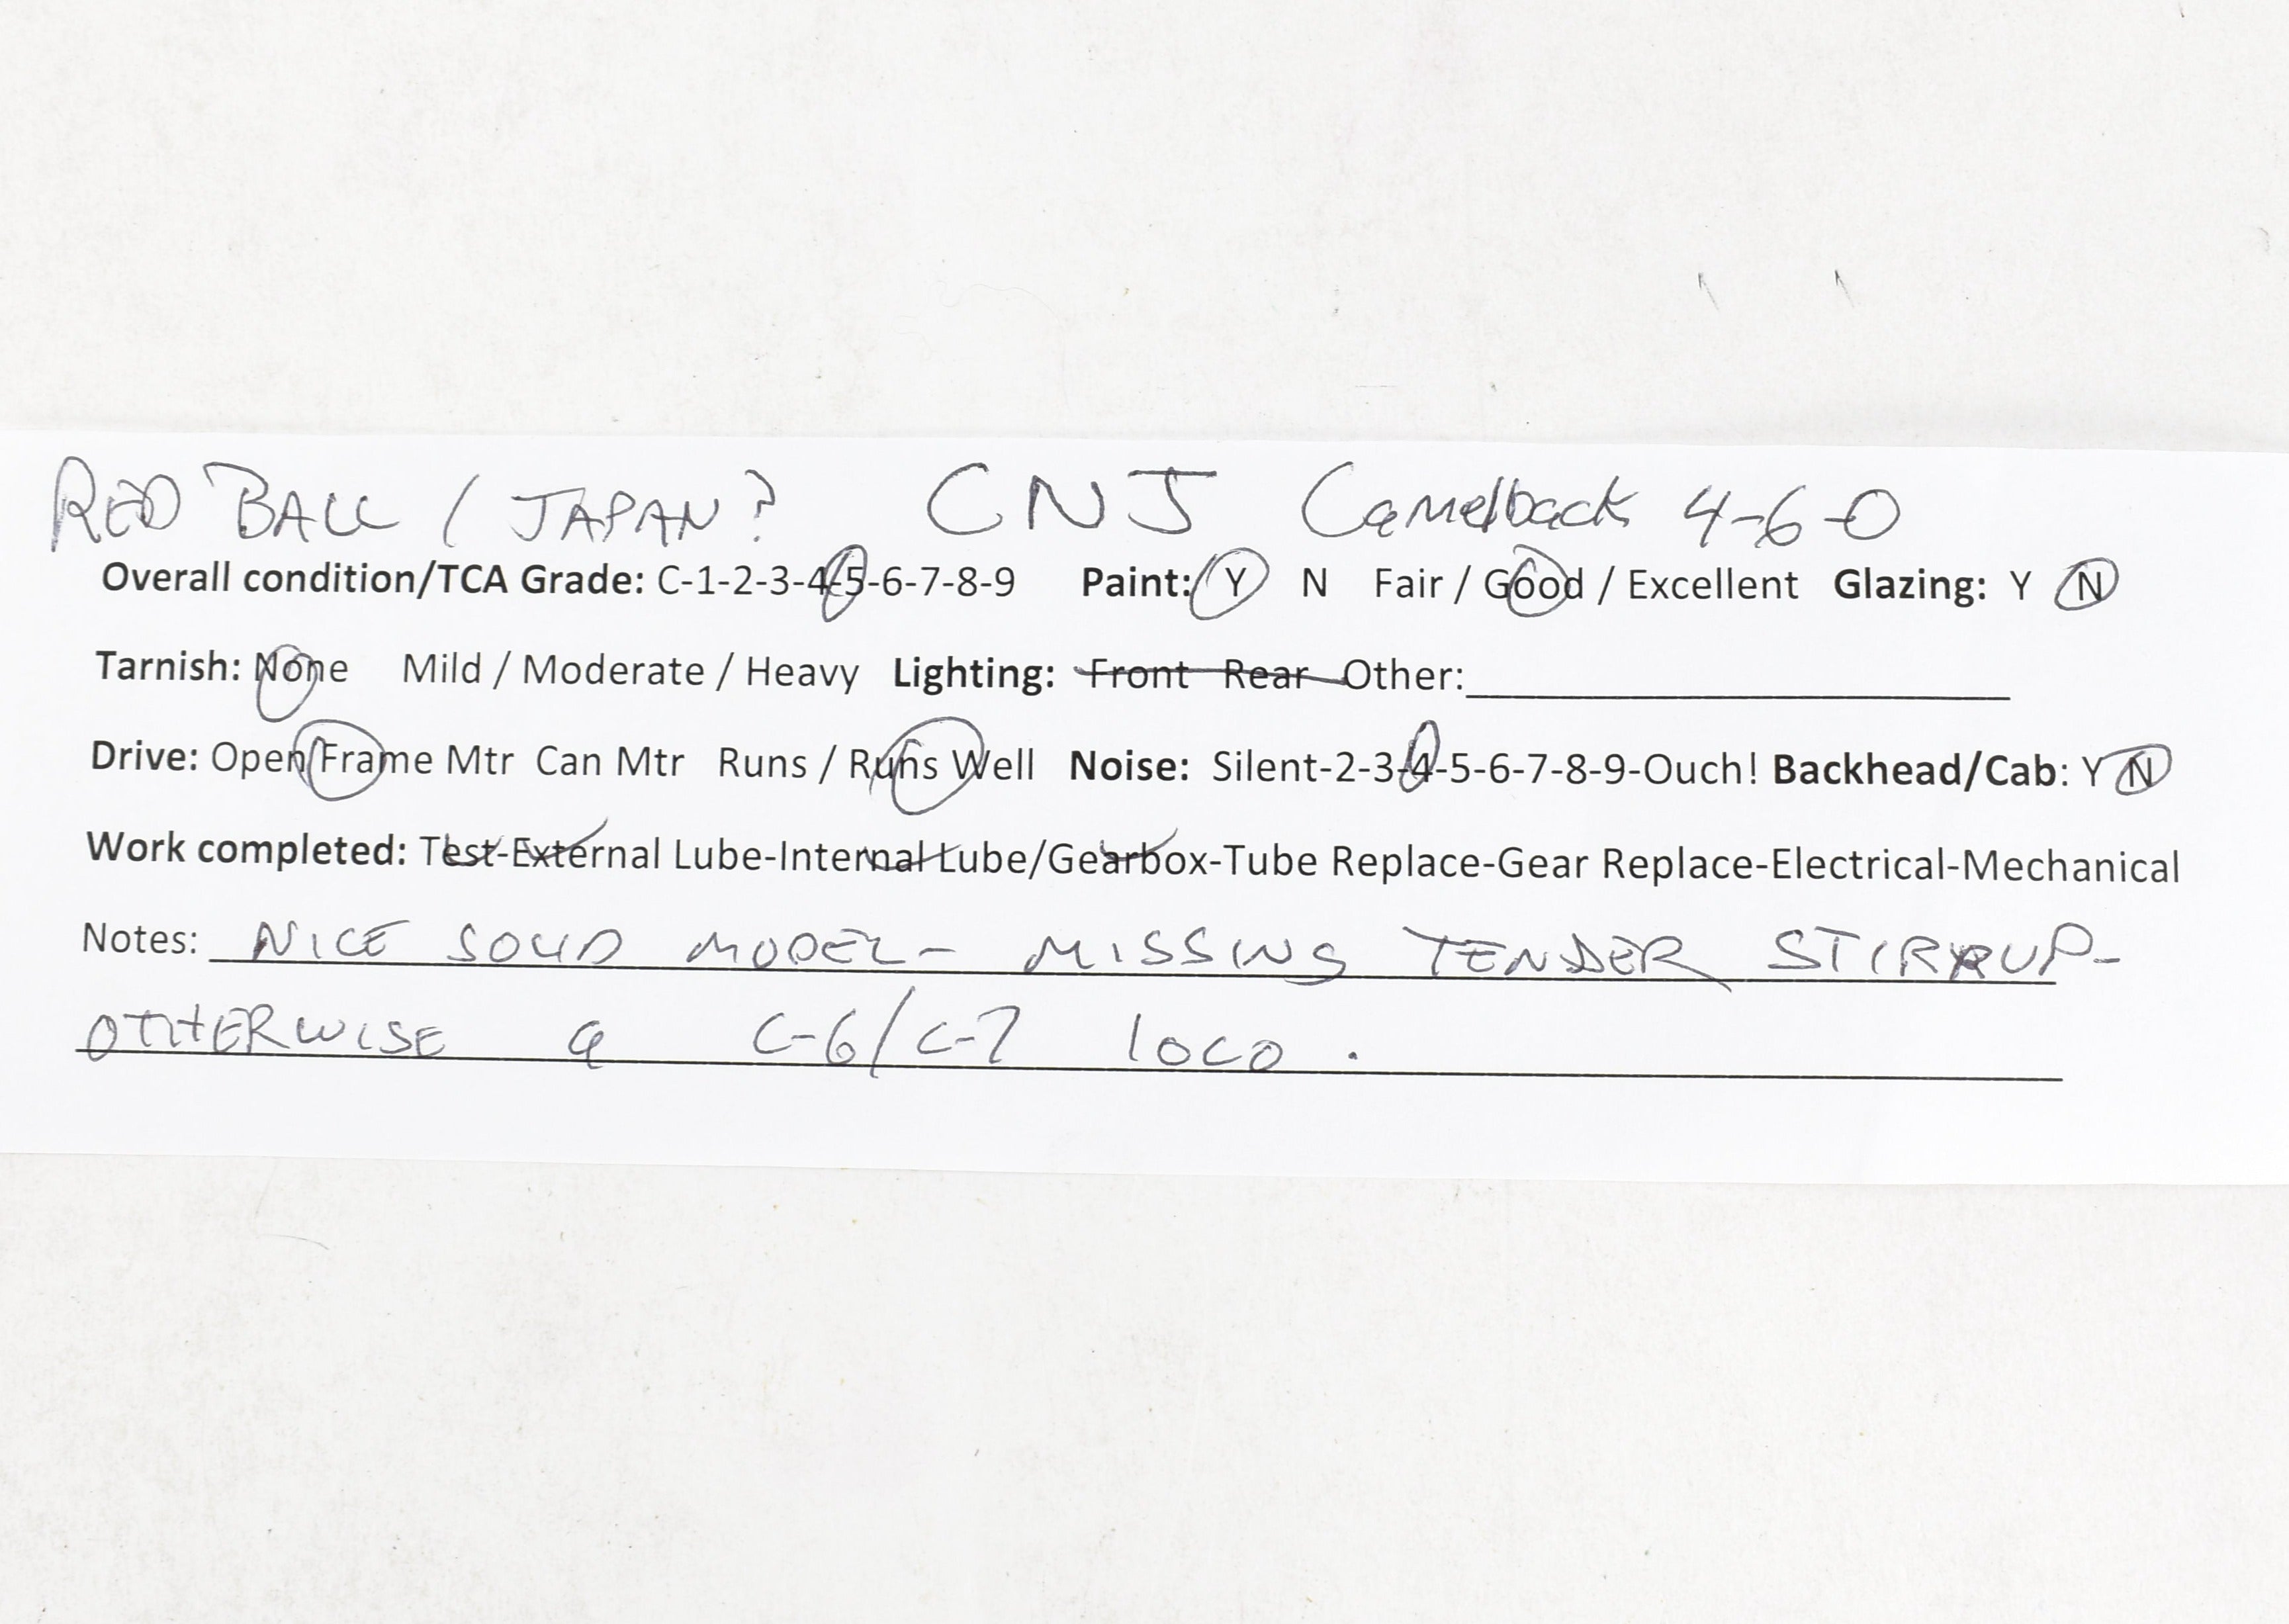 RED BALL / JAPAN? CNJ Camelback 4-6-0
Overall condition/TCA Grade: C-1-2-3-4-5-6-7-8-9 Paint: Y N Fair / Good / Excellent Glazing: Y N
Tarnish: None Mild / Moderate / Heavy Lighting: Front Rear Other:
Drive: Open/Frame Mtr Can Mtr Runs / Runs Well Noise: Silent-2-3-4-5-6-7-8-9-Ouch! Backhead/Cab: Y N
Work completed: Test-External Lube-Internal Lube/Gearbox-Tube Replace-Gear Replace-Electrical-Mechanical
Notes: NICE SOLID MODEL - MISSING TENDER STIRRUP-
OTHERWISE a C-6/C-7 loco.